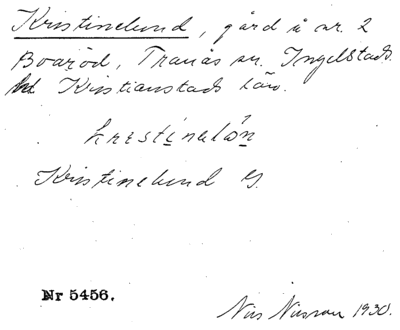 Kristinelund, gård å nr. 2
Boaröd, Tranås sn. Ingelstads
hd Kristianstads län.
krestinəlón
Kristinelund G.
Nr 5456.
Nils Nilsson 1930.